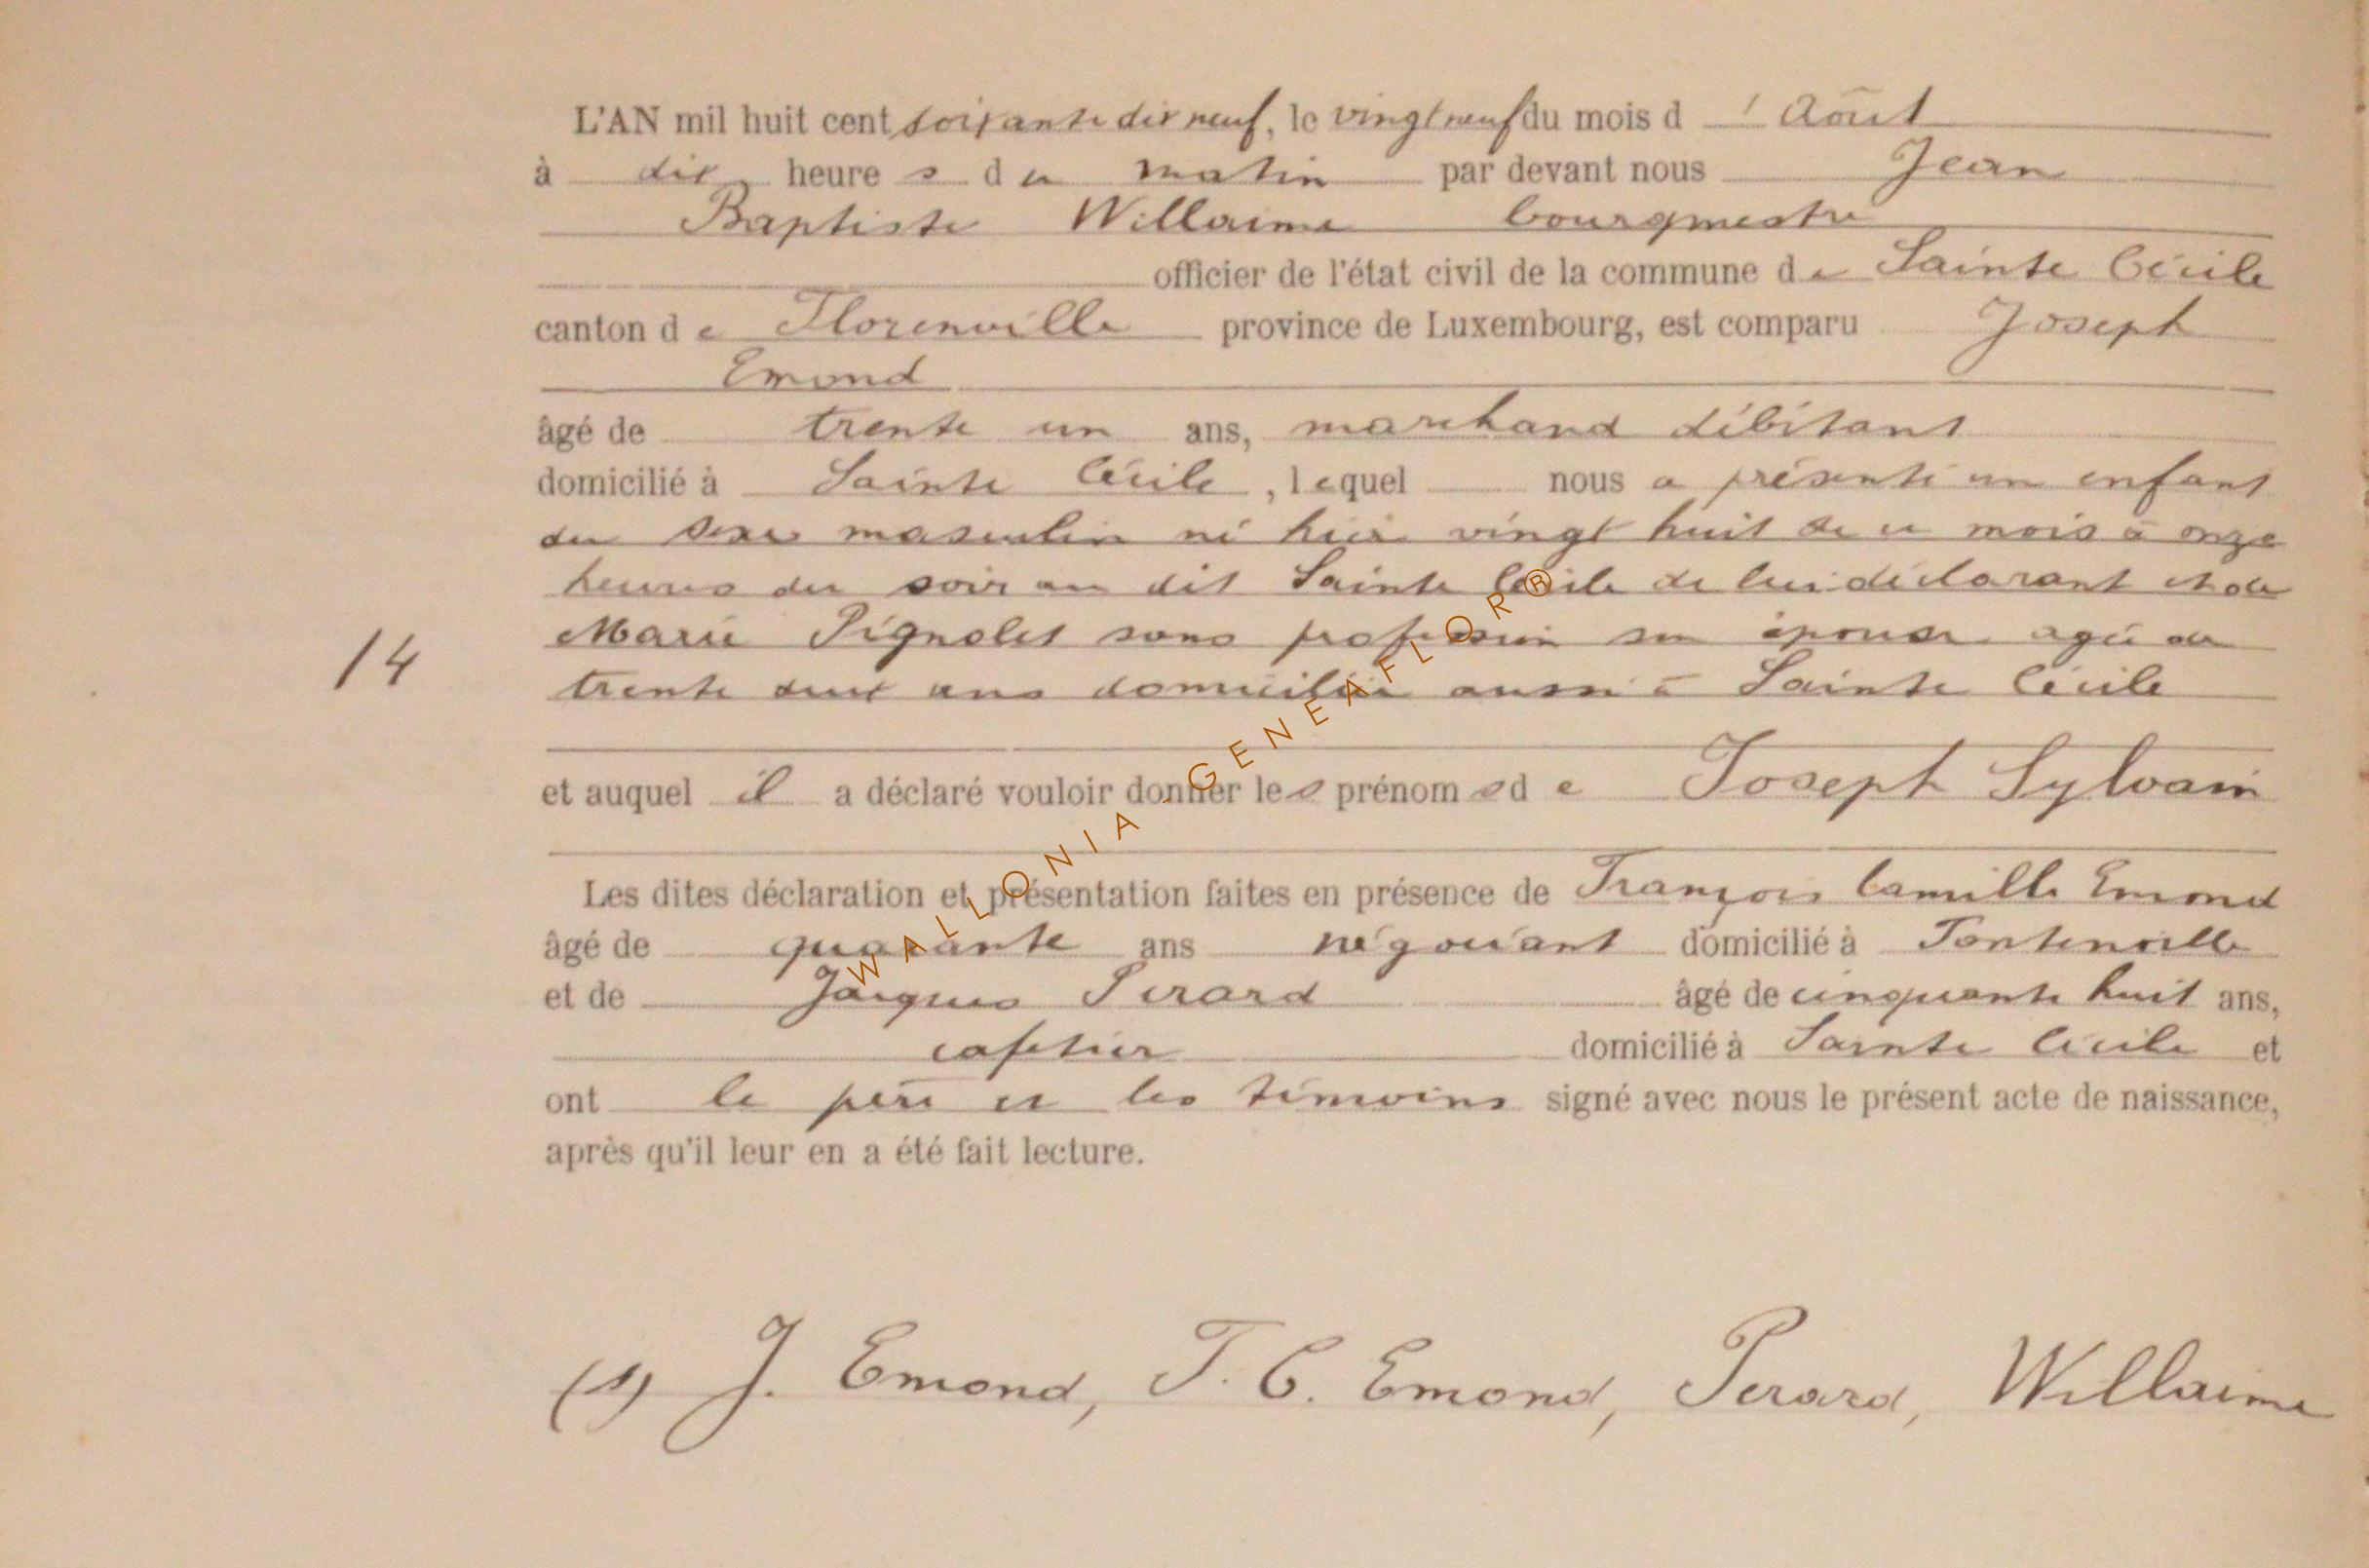 L'AN mil huit cent soixante dix neuf, le vingt neuf du mois d ' Août
à dix heure s d u matin par devant nous Jean
Baptiste Willaime bourgmestre
officier de l'état civil de la commune d e Sainte Cécile
canton d e Florenville province de Luxembourg, est comparu Joseph
Emond
âgé de trente un ans, marchand débitant
domicilié à Sainte Cécile, lequel nous a présenté un enfant
du sexe masculin né hier vingt huit de ce mois à onze
heures du soir au dit Sainte Cécile de lui déclarant et de
Marie Pignolet sans profession son épouse agée de
14
trente deux ans domiciliée aussi à Sainte Cécile
et auquel il a déclaré vouloir donner le s prénom s d e Joseph Sylvain
Les dites déclaration et présentation faites en présence de François Camille Emond
âgé de quarante ans négociant domicilié à Fontenoille
et de Jacques Perard âgé de cinquante huit ans,
cafetier domicilié à Sainte Cécile et
ont le père et les témoins signé avec nous le présent acte de naissance,
après qu'il leur en a été fait lecture.
(s) J. Emond, F. C. Emond, Perard, Willaime
WALLONIA - GENEAFLOR®